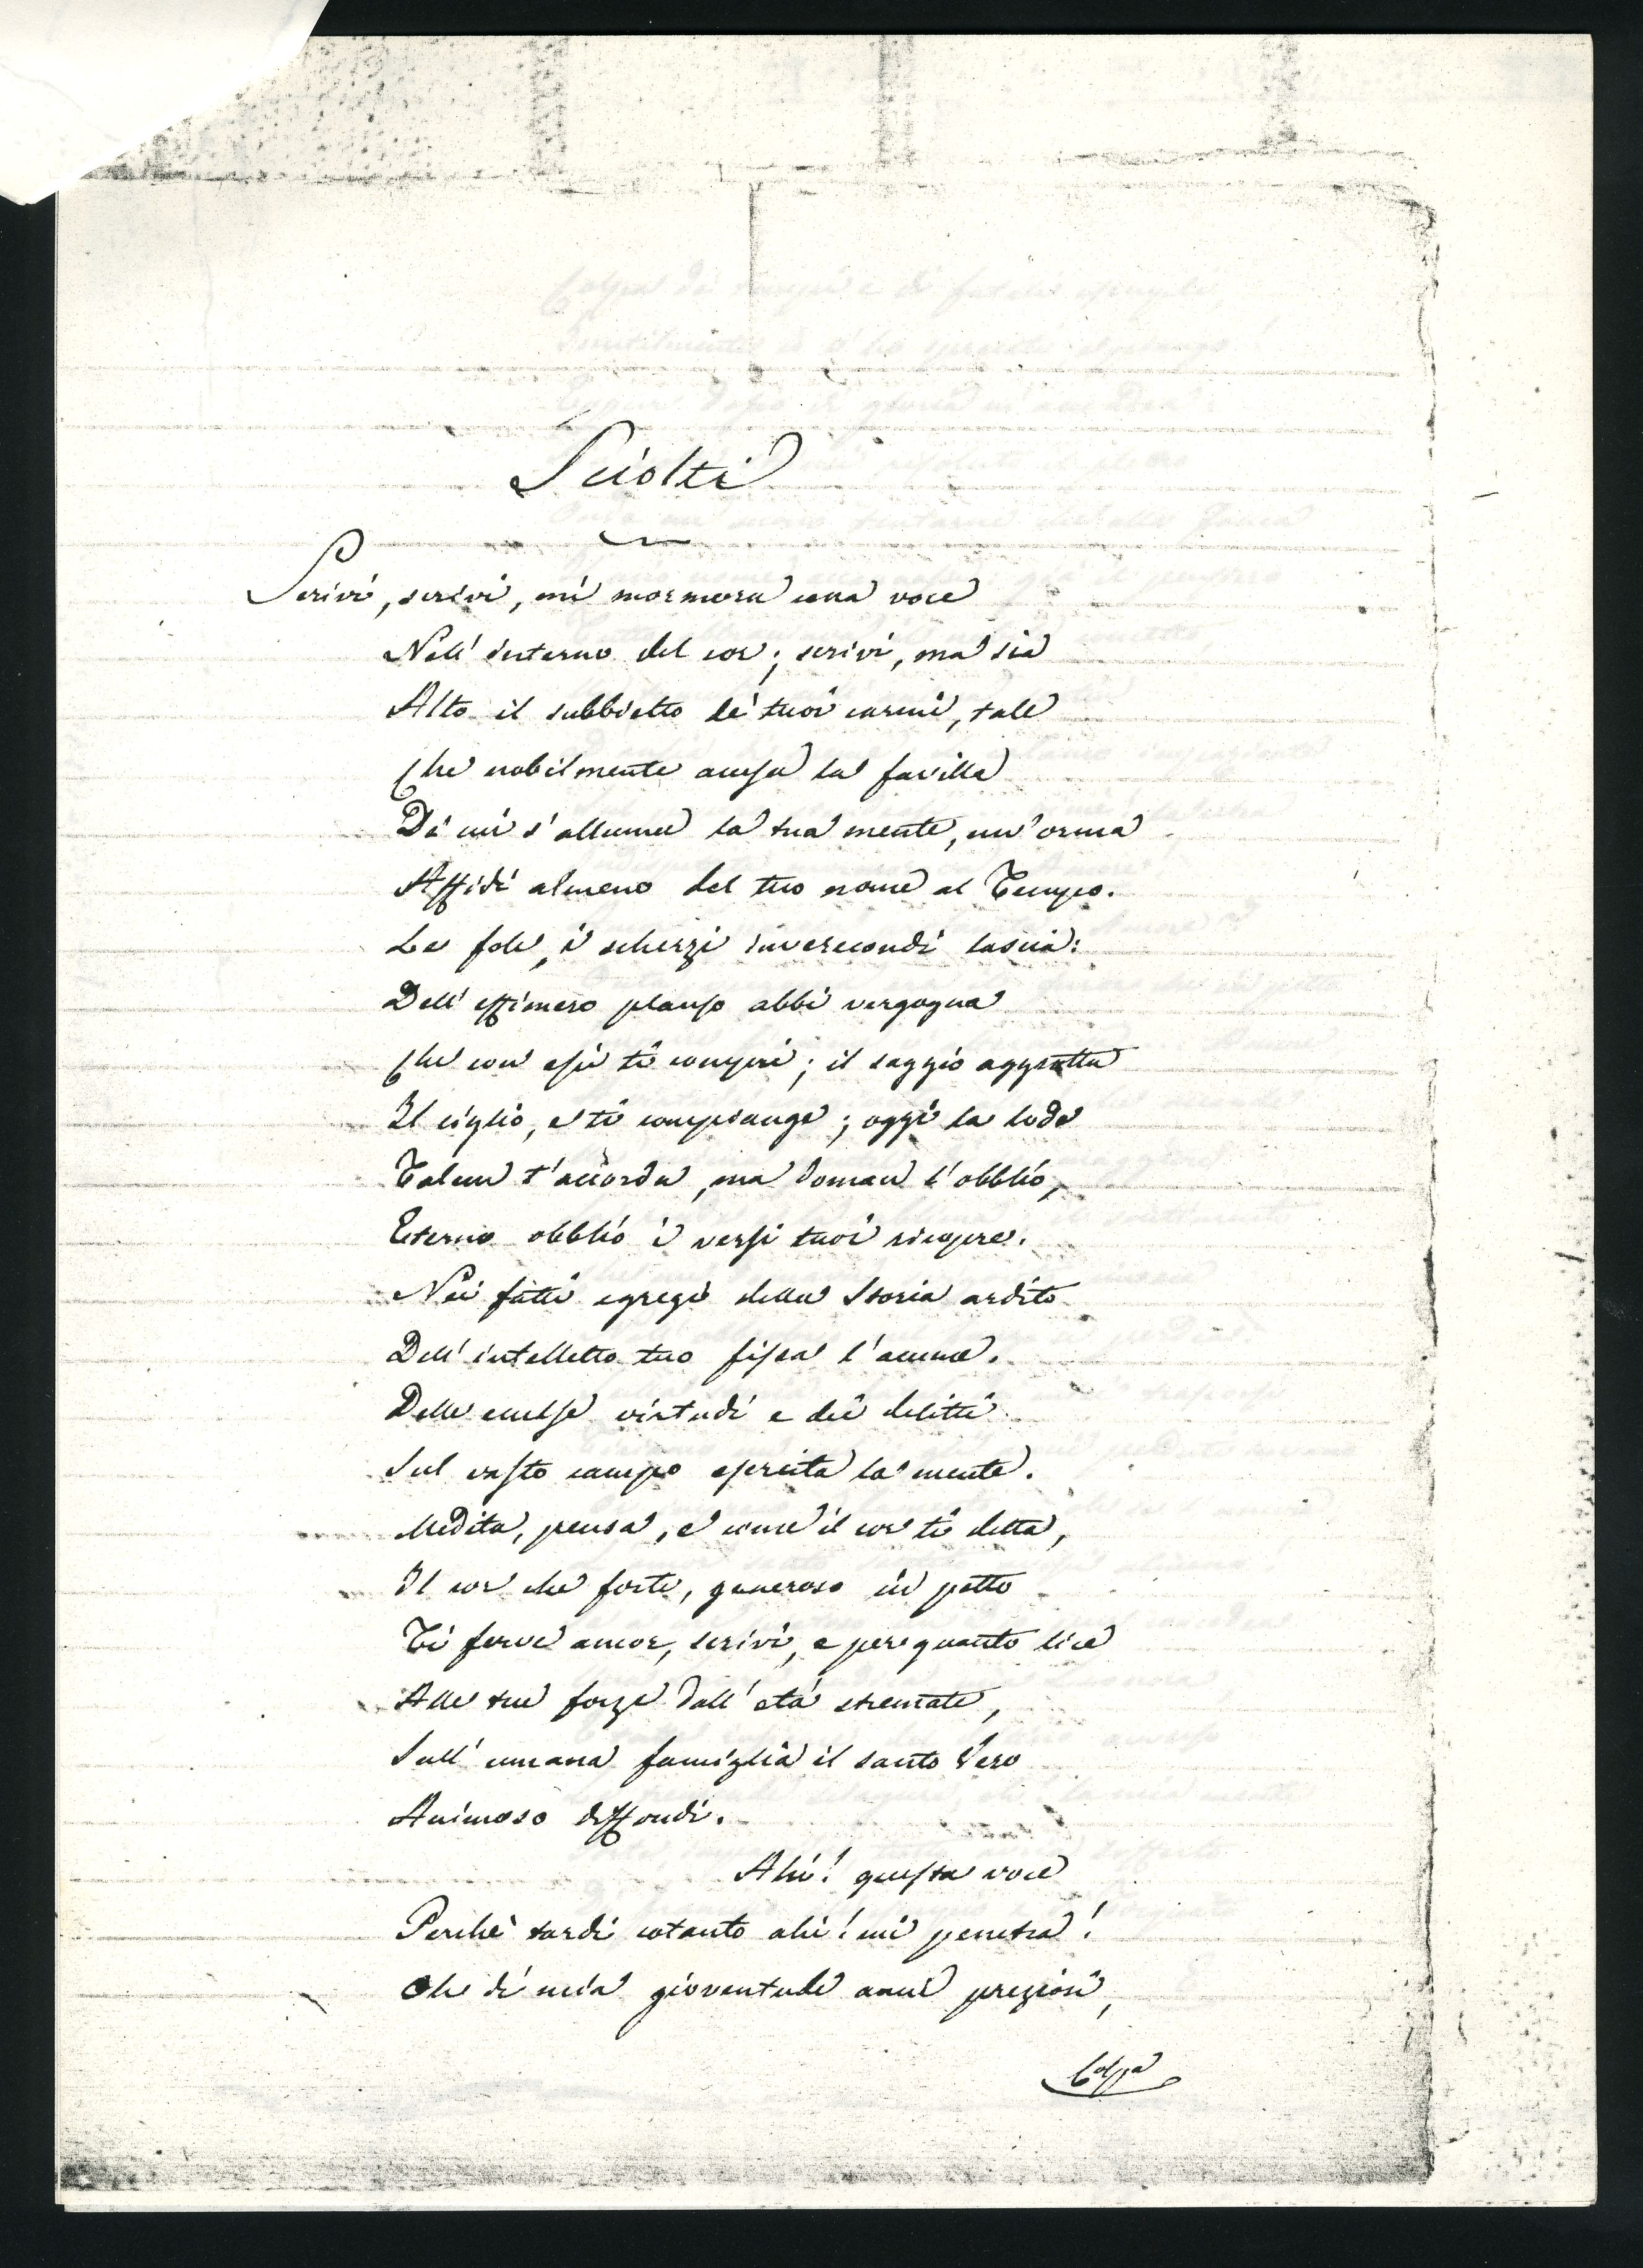 Sciolti
Scrivi, scrivi, mi mormora una voce
Nell' interno del cor; scrivi, ma sia
Alto il subbietto de' tuoi carmi, tale
Che nobilmente accesa la favilla
Di cui s'alluma la tua mente, un'orma
Affidi almeno del tuo nome al Tempo.
Le fole, i scherzi inverecondi lascia:
Dell' effimero plauso abbi vergogna
Che con essi ti comperi; il saggio aggrotta
Il ciglio, e ti compiange; oggi la lode
Talun t'accorda, ma doman l'obblío,
Eterno obblío i versi tuoi ricopre.
Nei fatti egregi della Storia ardito
Dell' intelletto tuo fissa l'acume.
Delle eccelse virtudi e dei delitti
Sul vasto campo esercita la mente.
Medita, pensa, e come il cor ti detta,
Il cor che forte, generoso in petto
Ti ferve ancor, scrivi, e per quanto lice
Alle tue forze dall' età stremate,
Sull' umana famiglia il santo Vero
Animoso diffondi.
Ahi! questa voce
Perchè tardi cotanto ahi! mi penetra!
Che di mia gioventude anni preziosi,
Colpa